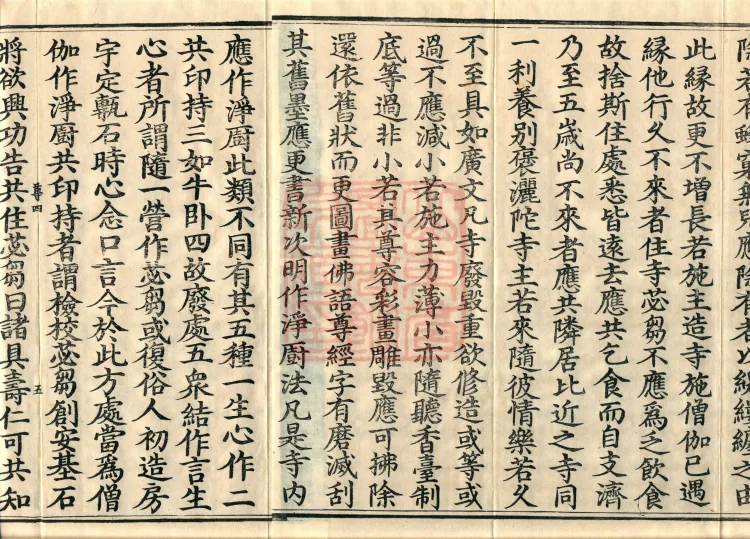 此緣故更不增長若施主造寺施僧伽已遇
緣他行久不來者住寺苾芻不應為乏飲食
故捨斯住處悉皆遠去應共乞食而自支濟
乃至五歲尚不來者應共隣居比近之寺同
一利養別褒灑陀寺主若來隨彼情樂若久
不至具如廣文凡寺廢毀重欲修造或等或
過不應減小若施主力薄小亦隨聽香臺制
底等過非小若其尊容彩畫雕毀應可拂除
還依舊狀而更圖畫佛語尊經字有磨滅刮
其舊墨應更書新次明作淨厨法凡是寺內
應作淨厨此類不同有其五種一生心作二
共印持三如牛卧四故廢處五衆結作言生
心者所謂隨一營作苾芻或復俗人初造房
宇定甎石時心念口言今於此方處當為僧
伽作淨厨共印持者謂撿挍苾芻創安基石
尊四
五
將欲興功告共住苾芻曰諸具壽仁可共知